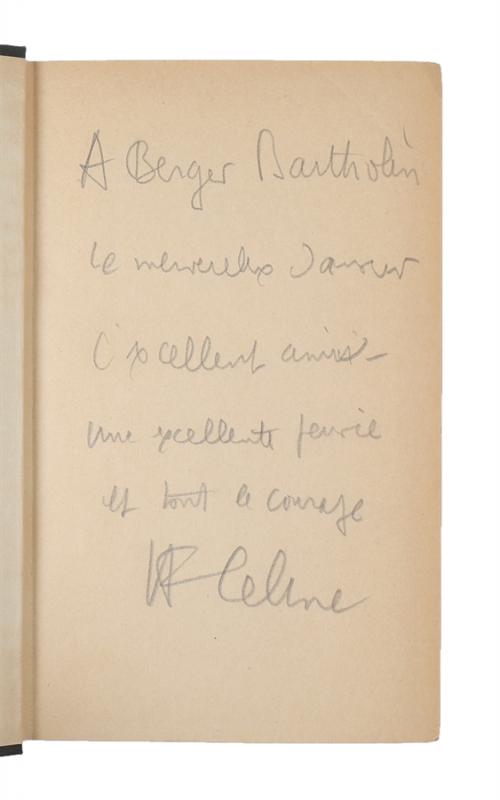 A Berger Bartholin
le merveilleux Danseur
l'excellent ami -
une excellente
et tout le courage
LF Celine